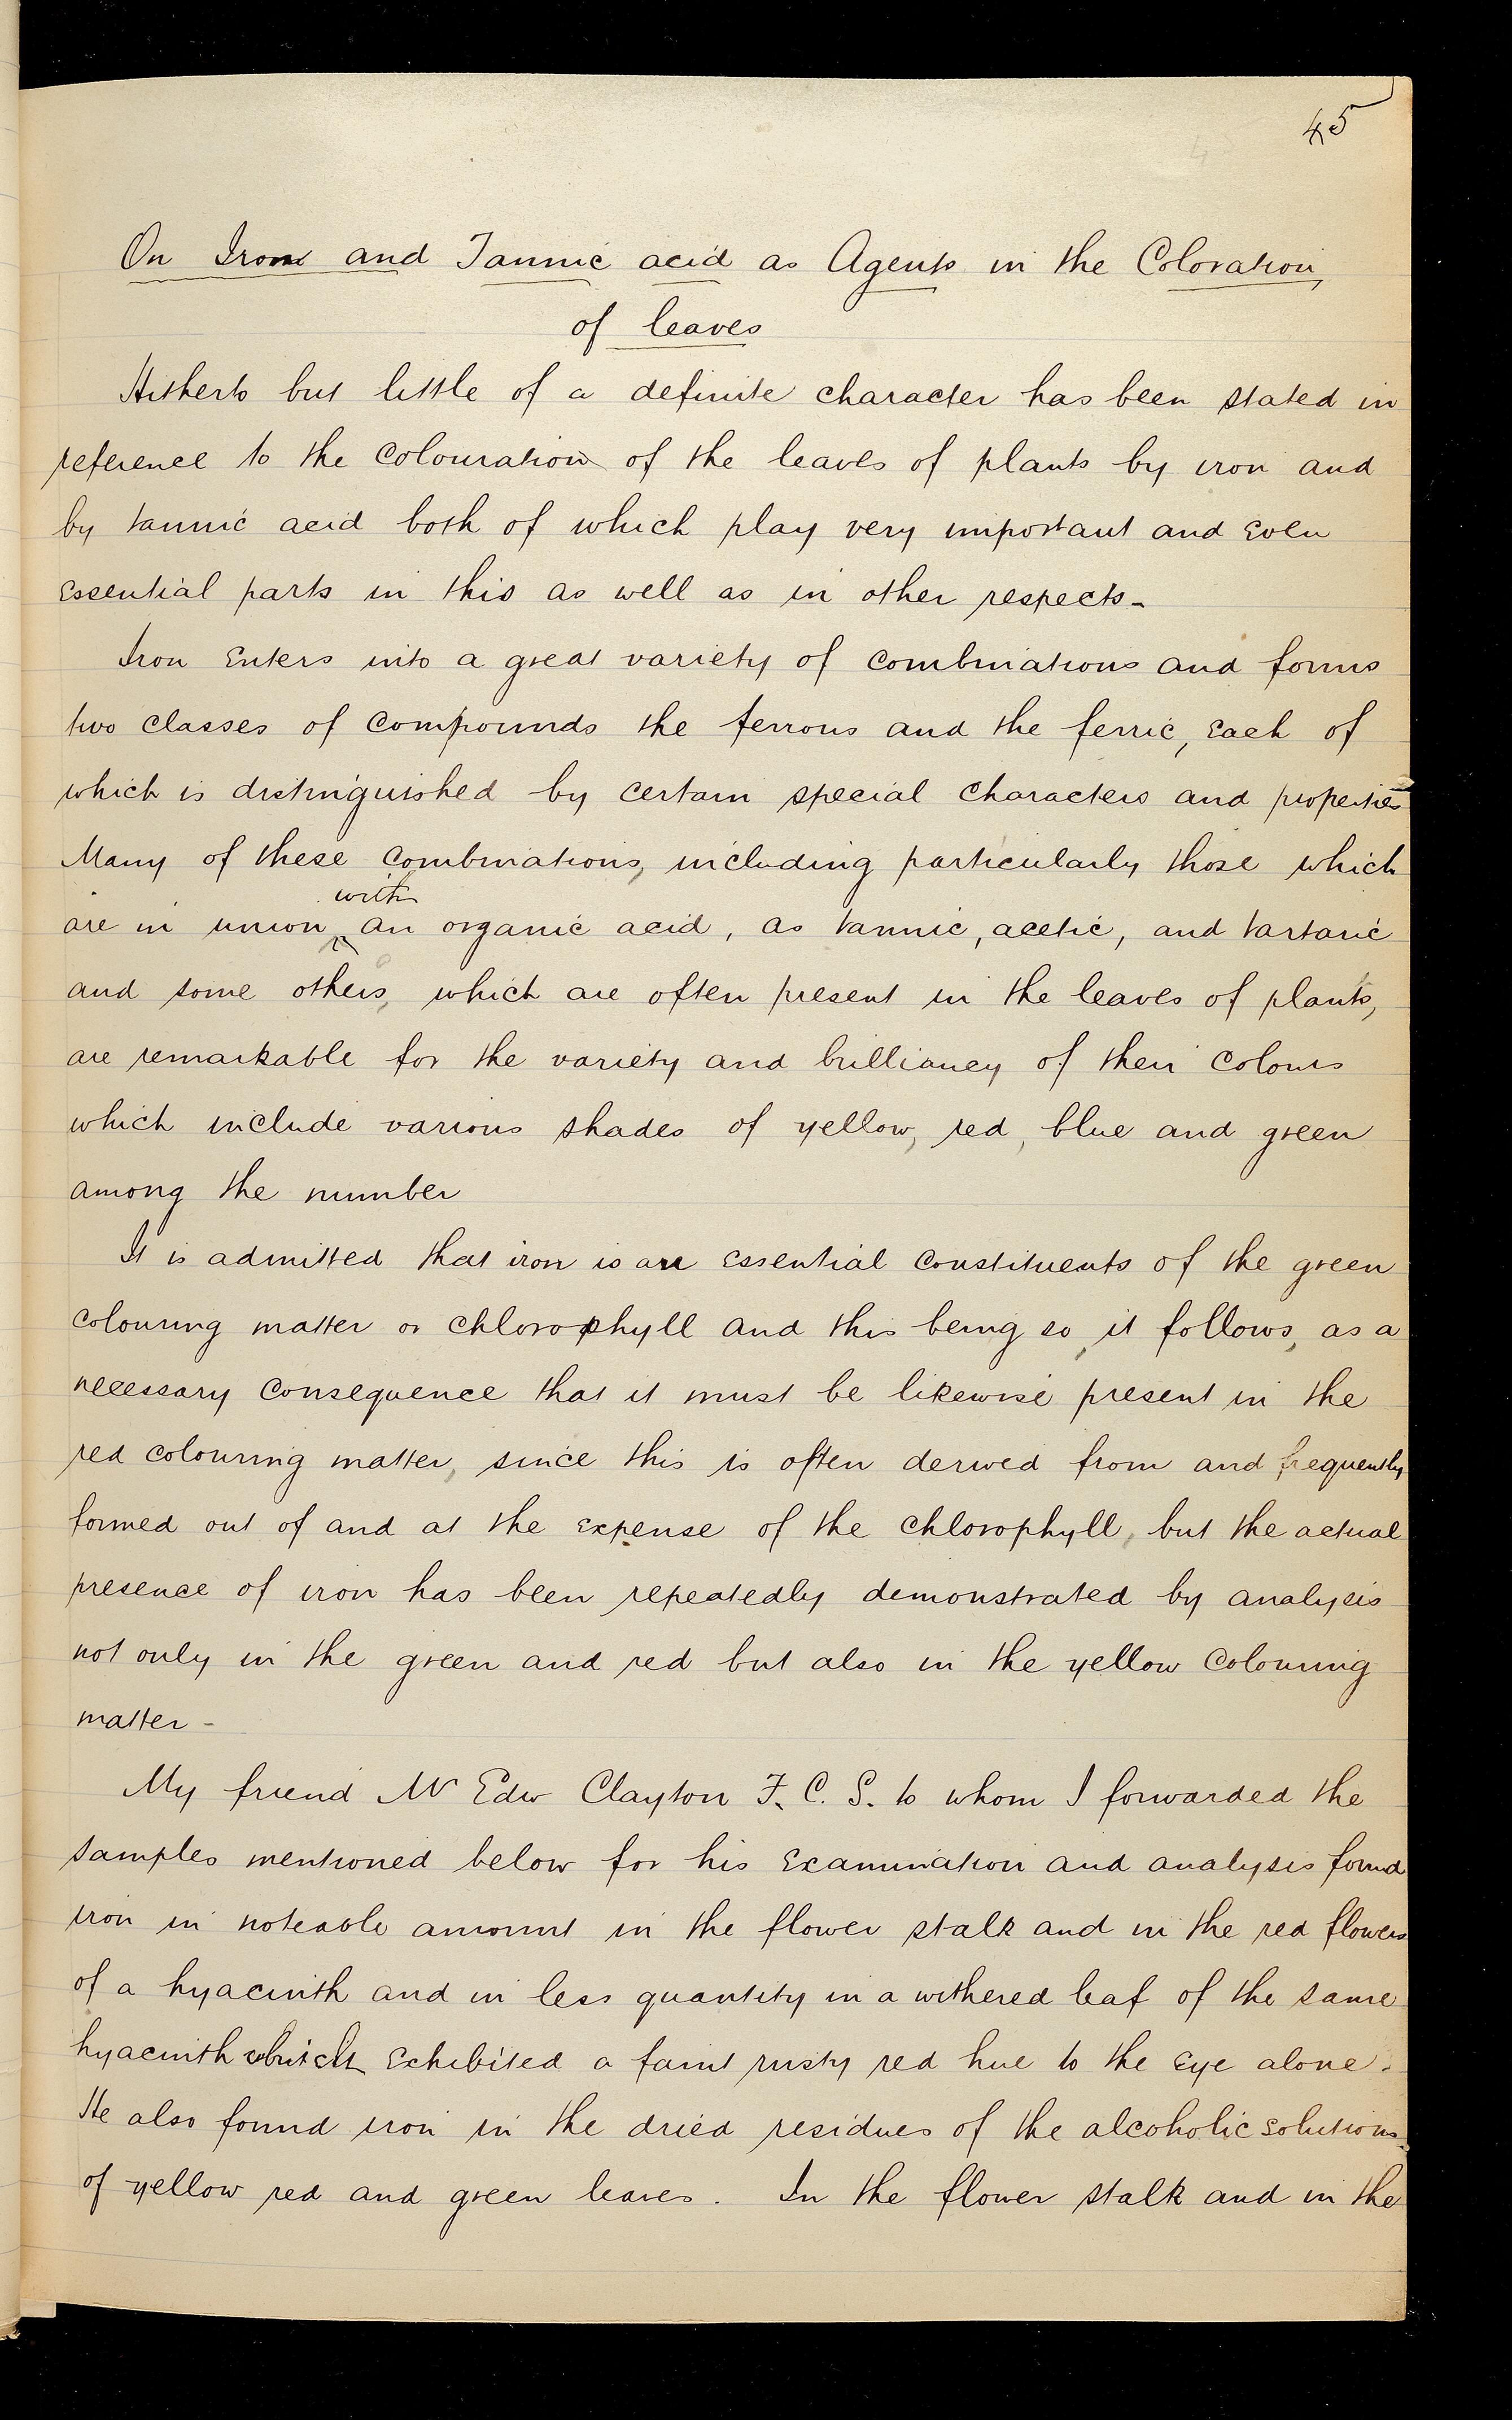 45
On Iron and Tannic acid as Agents in the Coloration,
of leaves
Hitherto but little of a definite character has been stated in
reference to the colouration of the leaves of plants by iron and
by tannic acid both of which play very important and even
essential parts in this as well as in other respects -
Iron enters into a great variety of combinations and forms
two classes of compounds the ferrous and the ferric, each of
which is distinguished by certain special characters and properties
Many of these combinations, including particularly those which
with
are in union an organic acid, as tannic, acetic, and tartaric
and some others, which are often present in the leaves of plants,
are remarkable for the variety and brilliancy of their colours
which include various shades of yellow, red, blue and green
among the number
It is admitted that iron is an essential constituents of the green
colouring matter or chlorophyll and this being so, it follows, as a
necessary consequence that it must be likewise present in the
red colouring matter, since this is often derived from and frequently
formed out of and at the expense of the chlorophyll, but the actual
presence of iron has been repeatedly demonstrated by analysis
not only in the green and red but also in the yellow colouring
matter -
My friend Mr Edw Clayton F. C. S. to whom I forwarded the
samples mentioned below for his examination and analysis found
iron in noteable amount in the flower stalk and in the red flowers
of a hyacinth and in less quantity in a withered leaf of the same
hyacinth which exhibited a faint rusty red hue to the eye alone.
He also found iron in the dried residues of the alcoholic solutions
of yellow red and green leaves. In the flower stalk and in the